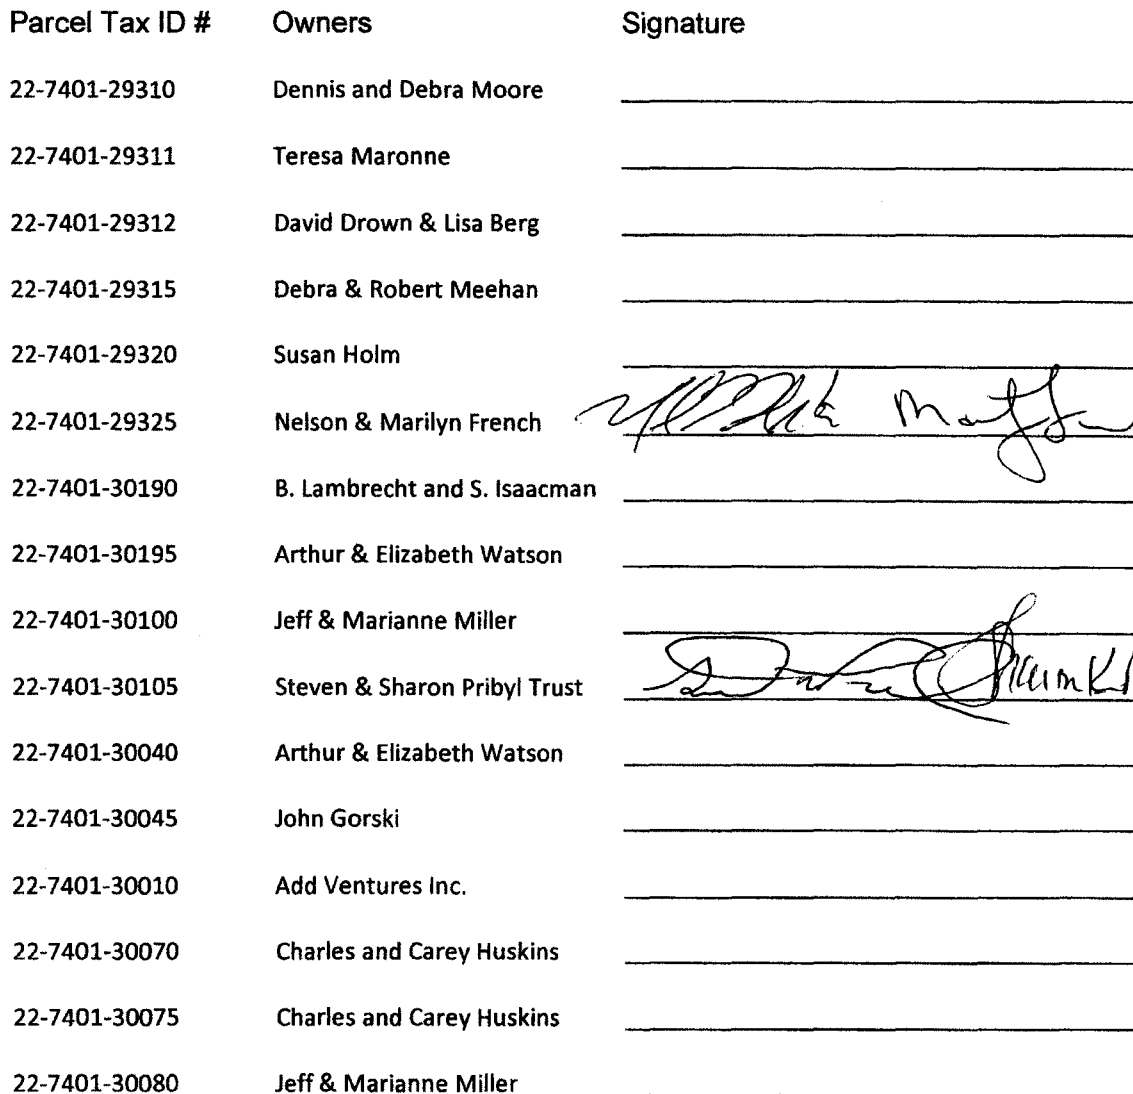 Parcel Tax ID # Owners Signature
22-7401-29310 Dennis and Debra Moore
22-7401-29311 Teresa Maronne
22-7401-29312 David Drown & Lisa Berg
22-7401-29315 Debra & Robert Meehan
22-7401-29320 Susan Holm
22-7401-29325 Nelson & Marilyn French
22-7401-30190 B. Lambrecht and S. Isaacman
22-7401-30195 Arthur & Elizabeth Watson
22-7401-30100 Jeff & Marianne Miller
22-7401-30105 Steven & Sharon Pribyl Trust
22-7401-30040 Arthur & Elizabeth Watson
22-7401-30045 John Gorski
22-7401-30010 Add Ventures Inc.
22-7401-30070 Charles and Carey Huskins
22-7401-30075 Charles and Carey Huskins
22-7401-30080 Jeff & Marianne Miller